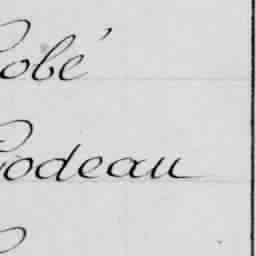 obé
odeau